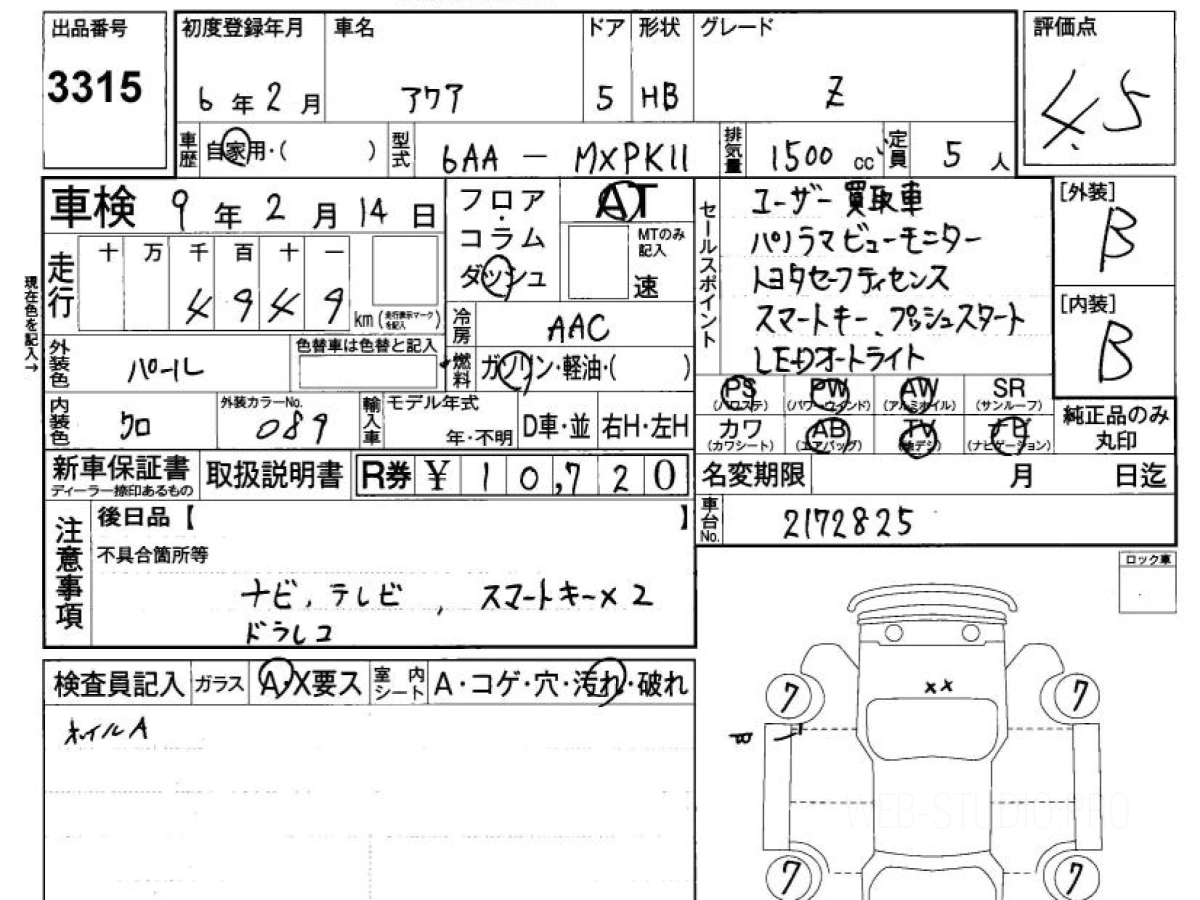 出品番号 初度登録年月 車名 ドア 形状 グレード 評価点
3315 6 年 2 月 アクア 5 HB Z 4.5
車歴 自家用・( ) 型式 6AA - MXPK11 排気量 1500 cc 定員 5 人
車検 9 年 2 月 14 日
フロア・コラム ダッシュ AT
MTのみ記入 速
セールスポイント
ユーザー買取車
パノラマビューモニター
トヨタセーフティセンス
スマートキー、プッシュスタート
LEDオートライト
[外装] B
[内装] B
現在色を記入→
走行 十 万 千 百 十 一
4 9 4 9 km (走行表示マークを記入)
冷房 AAC
外装色 パール 色替車は色替と記入
燃料 ガソリン・軽油・( )
PS (パワステ) PW (パワーウインド) AW (アルミホイル) SR (サンルーフ)
カワ (カワシート) AB (エアバッグ) TV (地デジ) (ナビゲーション)
純正品のみ丸印
内装色 クロ 外装カラーNo. 089
輸入車 モデル年式 年・不明 D車・並 右H・左H
新車保証書 ディーラー捺印あるもの 取扱説明書 R券 ¥ 10,720
名変期限 月 日迄
車台No. 2172825
注意事項
後日品【 】
不具合箇所等
ナビ, テレビ , スマートキー×2
ドラレコ
ロック車
検査員記入 ガラス A・X要ス 室内シート A・コゲ・穴・汚れ・破れ
ホイルA
××
7 7
7 7
WEB-STUDIO.PRO